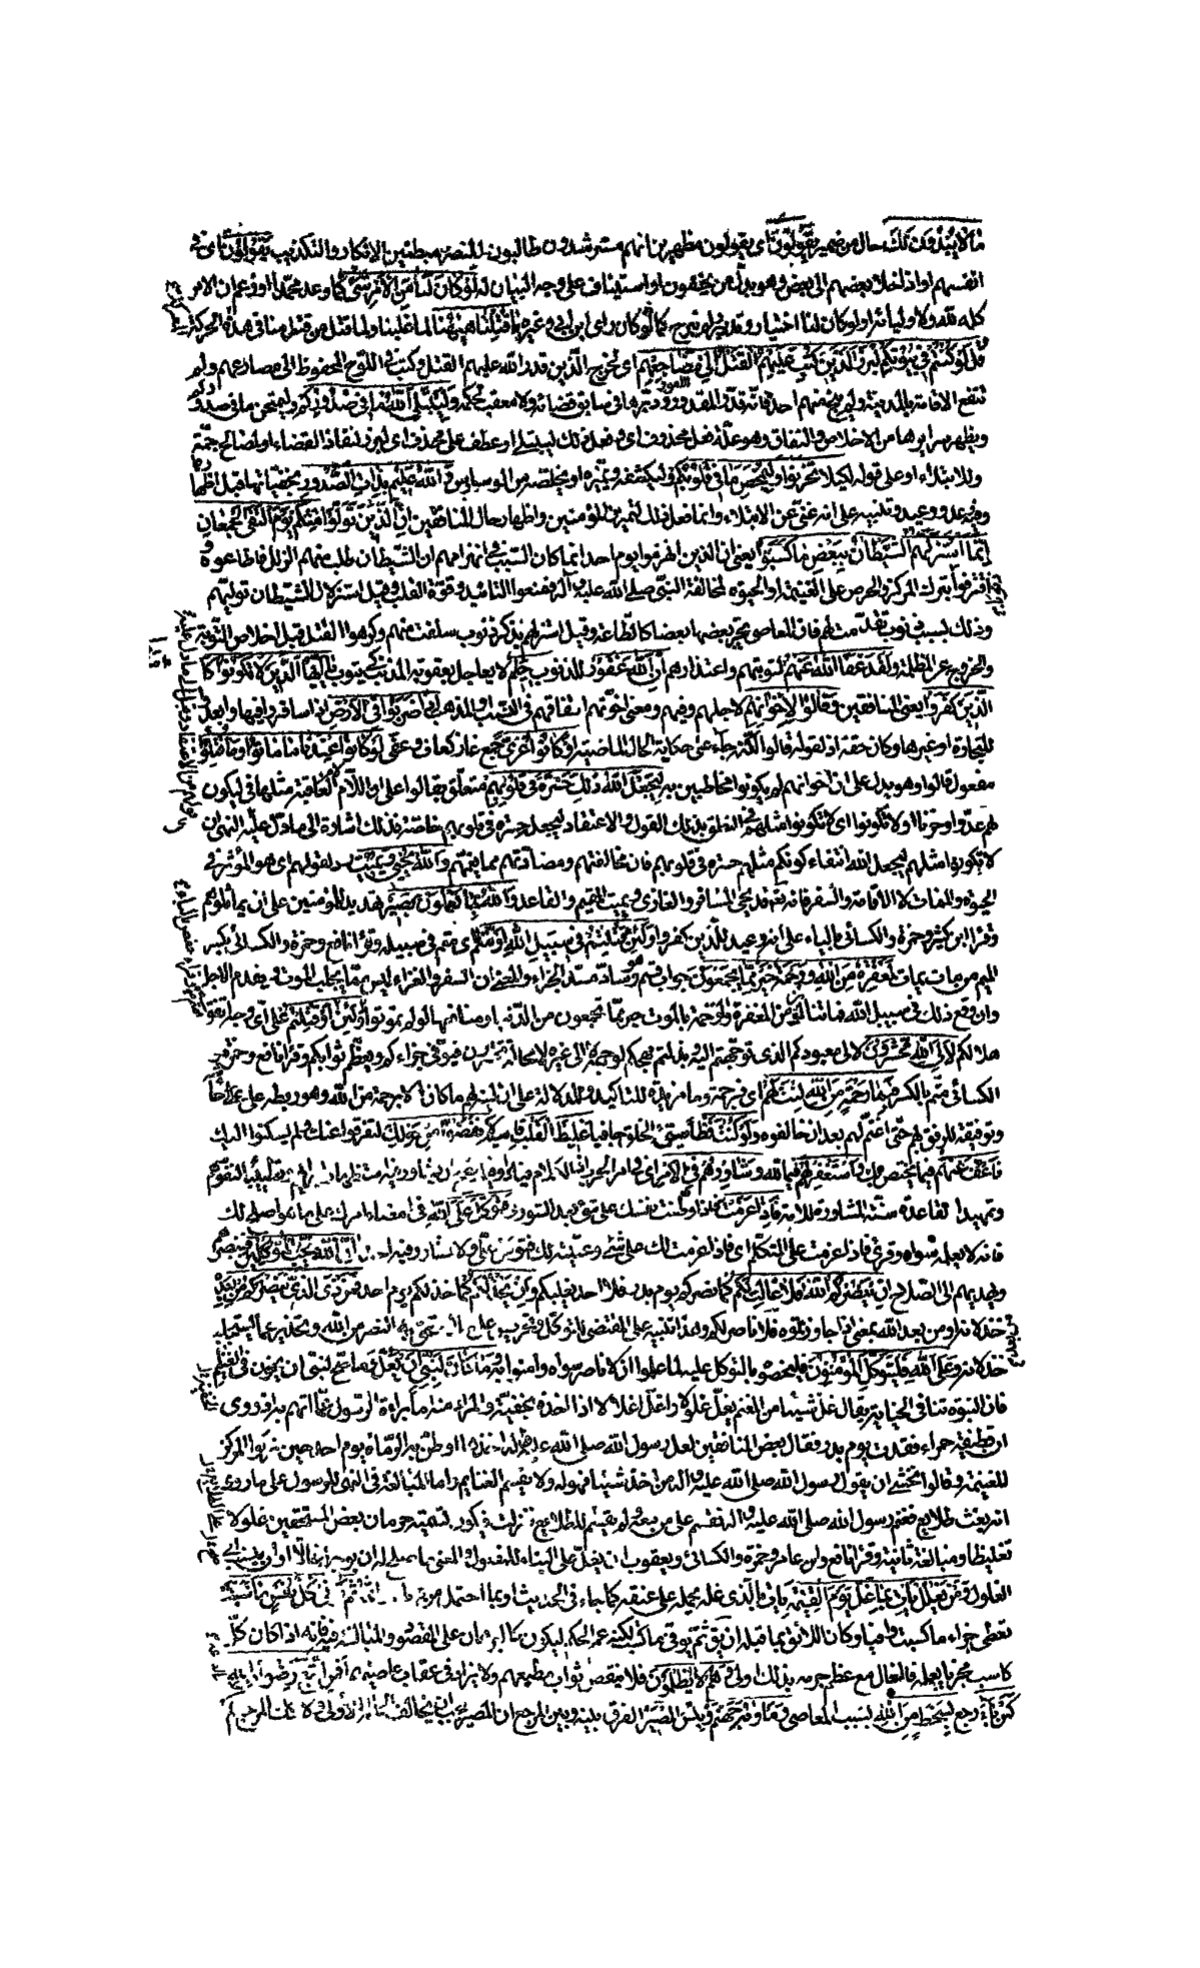 ما لا يبدون لك حال من ضمير يقولون اى يقولون مظهرين انهم مسترشدون طالبون للنصر مبطنين الانكار والتكذيب يقولون اى فى
انفسهم او اذا خلا بعضهم الى بعض وهو بدل من يخفون او استيناف على وجه البيان له لو كان لنا من الامر شئ كما وعد محمد او زعم ان الامر
كله لله ولاوليائه او لو كان لنا اختيار وتدبير لم نبرح كما كان راى ابن ابى وغيره ما قتلنا ههنا لما غلبنا ولما قتل من قتل منا فى هذه المعركة
قل لو كنتم فى بيوتكم لبرز الذين كتب عليهم القتل الى مضاجعهم اى لخرج الذين قدر الله عليهم القتل وكتب فى اللوح المحفوظ الى مصارعهم ولم
تنفع الاقامة بالمدينة ولم ينج منهم احد فانه قدر الامور ودبرها فى سابق قضائه لا معقب لحكمه وليبتلى الله ما فى صدوركم وليمتحن ما فى صدوركم
ويظهر سرايرها من الاخلاص والنفاق وهو علة فعل محذوف اى وفعل ذلك ليبتلى او عطف على محذوف اى لبرز لنفاذ القضاء او لمصالح جمة
وللابتلاء او على قوله لكيلا تحزنوا وليمحص ما فى قلوبكم وليكشفه ويميزه او يخلصه من الوساوس والله عليم بذات الصدور بخفياتها قبل اظهارها
وفيه وعد ووعيد وتنبيه على انه غنى عن الابتلاء وانما فعل ذلك لتمرين المؤمنين واظهار حال المنافقين ان الذين تولوا منكم يوم التقى الجمعان
انما استزلهم الشيطان ببعض ما كسبوا يعنى ان الذين انهزموا يوم احد انما كان السبب فى انهزامهم ان الشيطان طلب منهم الزلل فاطاعوه
واقترفوا بترك المركز والحرص على الغنيمة او الحيوة لمخالفة النبى صلى الله عليه وآله فمنعوا التائيد وقوة القلب وقيل استزلال الشيطان توليهم
وذلك بسبب ذنوب تقدمت لهم فان المعاصى يجر بعضها بعضا كالطاعة وقيل استزلهم بذكر ذنوب سلفت منهم وكرهوا القتل قبل اخلاص التوبة
والخروج عن المظلمة ولقد عفا الله عنهم لتوبتهم واعتذارهم ان الله غفور للذنوب حليم لا يعاجل بعقوبة المذنب كى يتوب يا ايها الذين لا تكونوا كا
الذين كفروا يعنى المنافقين وقالوا لاخوانهم لاجلهم وفيهم ومعنى اخوتهم اتفاقهم فى النسب او المذهب اذا ضربوا فى الارض اذا سافروا فيها وابعدوا
للتجارة او غيرها وكان حقه اذ لقوله قالوا لكنه جاء على حكاية الحال الماضية او كانوا غزى جمع غاز كعاف وعفى لو كانوا عندنا ما ماتوا وما قتلوا
مفعول قالوا وهو يدل على ان اخوانهم لم يكونوا مخاطبين به ليجعل الله ذلك حسرة فى قلوبهم متعلق بقالوا على ان اللام لام العاقبة مثلها فى ليكون
لهم عدوا وحزنا او لا تكونوا اى لا تكونوا مثلهم فى النطق بذلك القول والاعتقاد ليجعله حسرة فى قلوبهم خاصة فذلك اشارة الى ما دل عليه النهى ان
لا تكونوا مثلهم ليجعل الله انتفاء كونكم مثلهم حسرة فى قلوبهم فان مخالفتهم ومضادتهم مما يغمهم والله يحيى ويميت رد لقولهم اى هو المؤثر فى
الحيوة والممات لا الاقامة والسفر فانه تعالى قد يحيى المسافر والغازى ويميت المقيم والقاعد والله بما تعملون بصير تهديد للمؤمنين على ان يماثلوهم
وقرا ابن كثير وحمزة والكسائى بالياء على انه وعيد للذين كفروا ولئن قتلتم فى سبيل الله او متم اى متم فى سبيله وقرا نافع وحمزة والكسائى بكسر
الميم من مات يمات لمغفرة من الله ورحمة خير مما يجمعون جواب القسم وهو ساد مسد الجزاء والمعنى ان السفر والغزاء ليس مما يجلب الموت ويقدم الاجل
وان وقع ذلك فى سبيل الله فما تنالون من المغفرة والرحمة بالموت خير مما تجمعون من الدنيا ومنافعها لو لم تموتوا ولئن متم او قتلتم على اى وجه اتفق
هلاككم لالى الله تحشرون لالى معبودكم الذى توجهتم اليه وبذلتم مهجكم لوجهه لا الى غيره لا محالة تحشرون فيوفى جزاءكم ويعظم ثوابكم وقرا نافع وحمزة
الكسائى متم بالكسر فبما رحمة من الله لنت لهم اى فبرحمة وما مزيدة للتاكيد والدلالة على ان لينه لهم ما كان الا برحمة من الله وهو ربطه على جاشه
وتوفيقه للرفق بهم حتى اغتم لهم بعد ان خالفوه ولو كنت فظا سيئ الخلق جافيا غليظ القلب قاسيه لانفضوا من حولك لتفرقوا عنك ولم يسكنوا اليك
فاعف عنهم فيما يختص بك واستغفر لهم فيما لله وشاورهم فى الامر اى فى امر الحرب اذ الكلام فيه او فيما يصح ان يشاور فيه استظهارا برايهم وتطييبا لنفوسهم
وتمهيدا لقاعدة سنة المشاورة للامة فاذا عزمت فاذا وطنت نفسك على شئ بعد الشورى فتوكل على الله فى امضاء امرك على ما هو اصلح لك
فانه لا يعلمه سواه وقرئ فاذا عزمت على التكلم اى فاذا عزمت لك على شئ وعينته لك فتوكل على ولا تشاور فيه احدا ان الله يحب المتوكلين فينصرهم
ويهديهم الى الصلاح ان ينصركم الله فلا غالب لكم كما نصركم يوم بدر فلا احد يغلبكم وان يخذلكم كما خذلكم يوم احد فمن ذا الذى ينصركم من بعده
خذلانه او من بعد الله بمعنى اذا جاوزتموه فلا ناصر لكم وهذا تنبيه على المقتضى للتوكل وتحريض على ما يستحق به النصر من الله وتحذير عما يستجلب
خذلانه وعلى الله فليتوكل المؤمنون فليخصوه بالتوكل عليه لما علموا ان لا ناصر سواه وامنوا به وما كان لنبى ان يغل وما صح لنبى ان يخون فى الغنايم
فان النبوة تنافى الخيانة يقال غل شيئا من المغنم يغل غلولا واغل اغلالا اذا اخذه بخفية والمراد منه اما براءة الرسول عما اتهم به اذ روى
ان قطيفة حمراء فقدت يوم بدر فقال بعض المنافقين لعل رسول الله صلى الله عليه وآله اخذها او ظن به الرماة يوم احد حين تركوا المركز
للغنيمة وقالوا نخشى ان يقول رسول الله صلى الله عليه وآله من اخذ شيئا فهو له ولا يقسم الغنايم واما المبالغة فى النهى للرسول على ما روى
انه بعث طلايع فغنم رسول الله صلى الله عليه وآله فقسم على من معه ولم يقسم للطلايع فنزلت فيكون تسمية حرمان بعض المستحقين غلولا
تغليظا ومبالغة ثانية وقرا نافع وابن عامر وحمزة والكسائى ويعقوب ان يغل على البناء للمفعول والمعنى ما صح له ان يوجد غالا او ان ينسب الى
الغلول ومن يغلل يات بما غل يوم القيمة يات بالذى غله يحمله على عنقه كما جاء فى الحديث او بما احتمل من وباله واثمه ثم توفى كل نفس ما كسبت
تعطى جزاء ما كسبت وافيا وكان اللائق بما قبله ان يق ثم يوفى ما كسب لكنه عمم الحكم ليكون كالبرهان على المقصود والمبالغة فيه فانه اذا كان كل
كاسب مجزيا بعمله فالغال مع عظم جرمه بذلك اولى وهم لا يظلمون فلا ينقص ثواب مطيعهم ولا يزاد فى عقاب عاصيهم افمن اتبع رضوان الله
كمن باء رجع بسخط من الله بسبب المعاصى وماواه جهنم وبئس المصير الفرق بينه وبين المرجع ان المصير يجب ان يخالف الحالة الاولى ولا كذلك المرجع هم